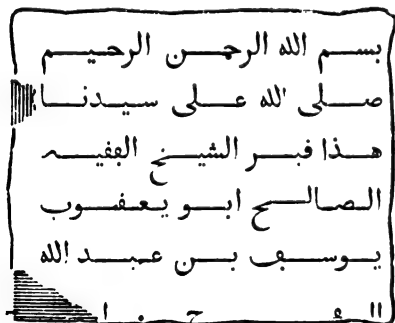 بسم الله الرحمن الرحيم
صلى الله على سيدنا
هذا فبر الشيخ الففيه
الصالح ابو يعفوب
يوسف بن عبد الله